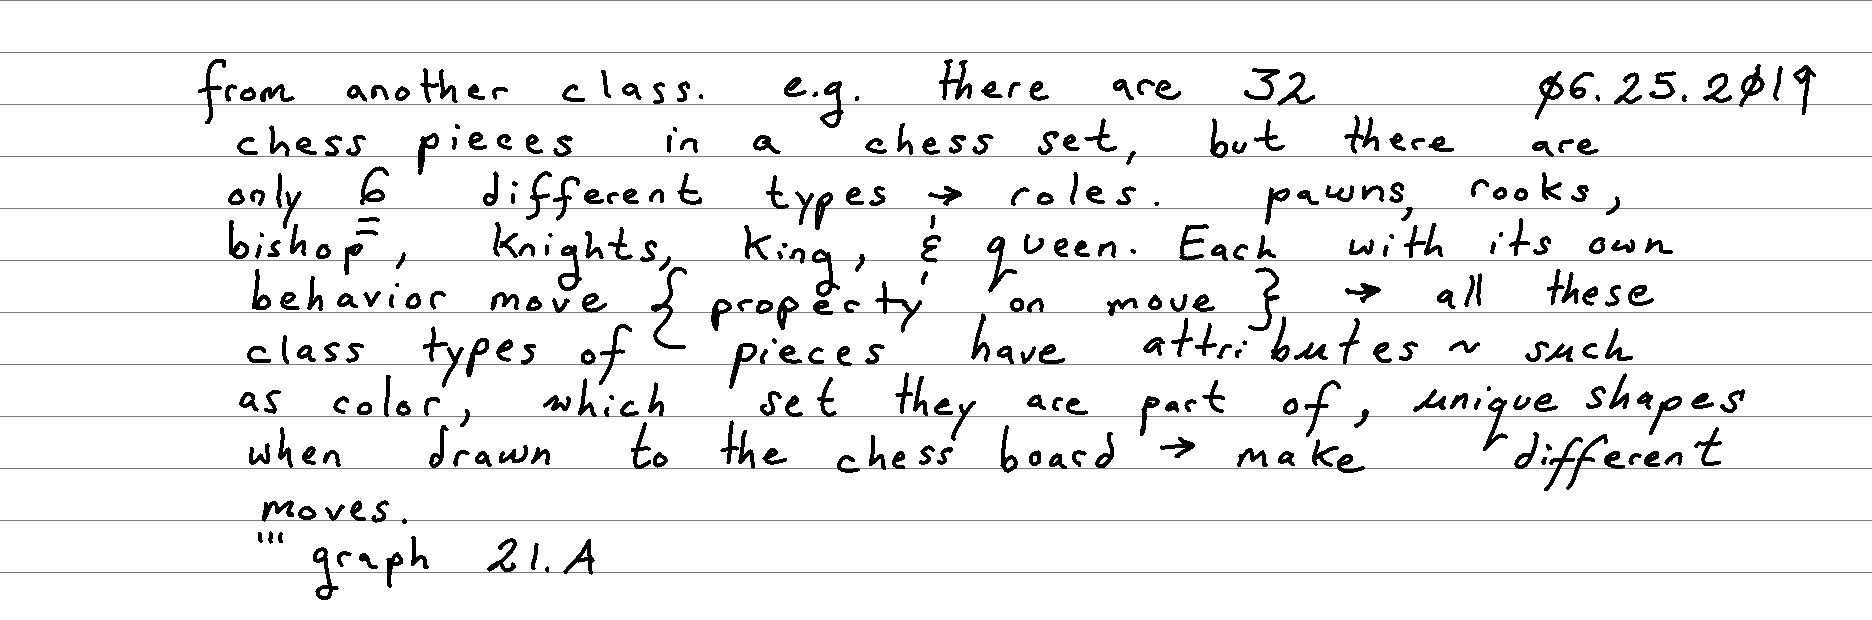 from another class. e.g. there are 32 ø6.25.2ø19
chess pieces in a chess set, but there are
only 6 different types → roles. pawns, rooks,
bishop, knights, king, & queen. Each with its own
behavior move { property on move } → all these
class types of pieces have attributes ~ such
as color, which set they are part of, unique shapes
when drawn to the chess board → make different
moves.
''' graph 21.A